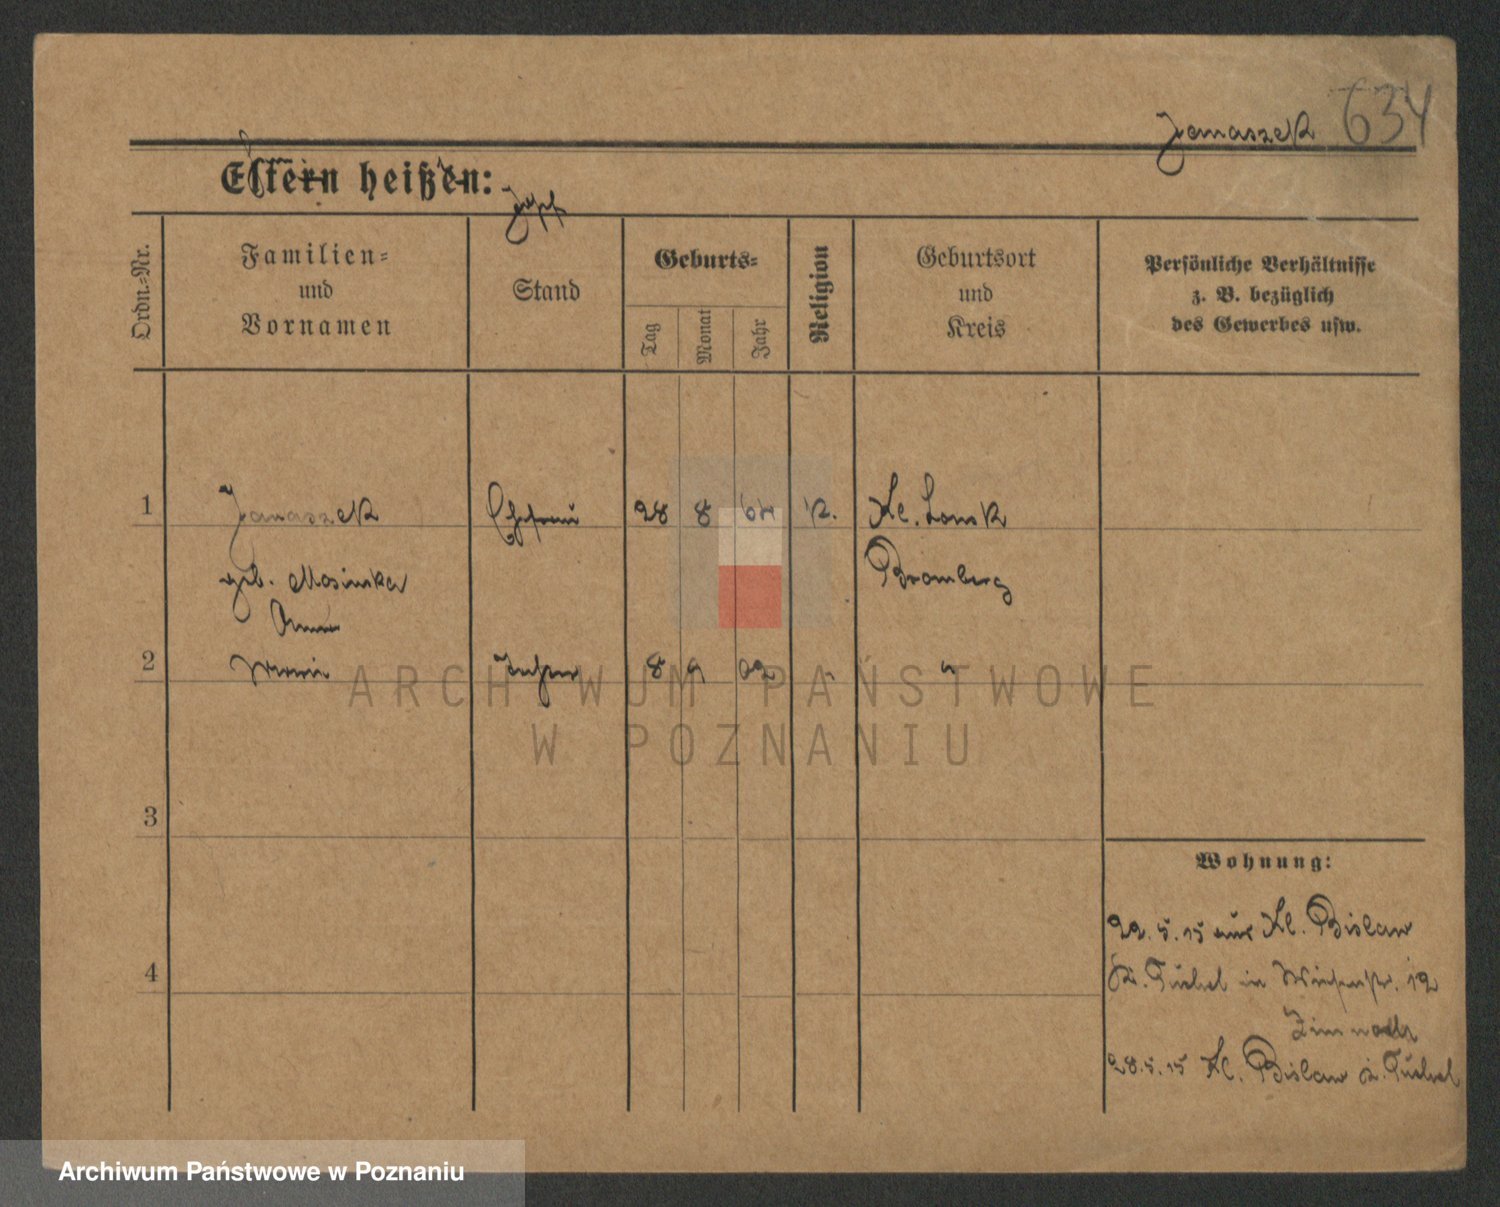 634
Janaszek
Eltern heißen:
Josef
Ordn.=Nr.
Familien=
und
Vornamen
Stand
Geburts=
Tag
Monat
Jahr
Religion
Geburtsort
und
Kreis
Persönliche Verhältnisse
z. B. bezüglich
des Gewerbes usw.
1 Janaszek Ehefrau 28 8 K. Kl. Lonsk
geb. Mosinska Bromberg
Anna
2 8 9 02 "
3
Wohnung:
22.5.15 aus Kl. Bislaw
4
Kr. Tuchel in 12
28.5.15 Kl. Bislaw Kr. Tuchel
ARCHIWUM PAŃSTWOWE
W POZNANIU
Archiwum Państwowe w Poznaniu